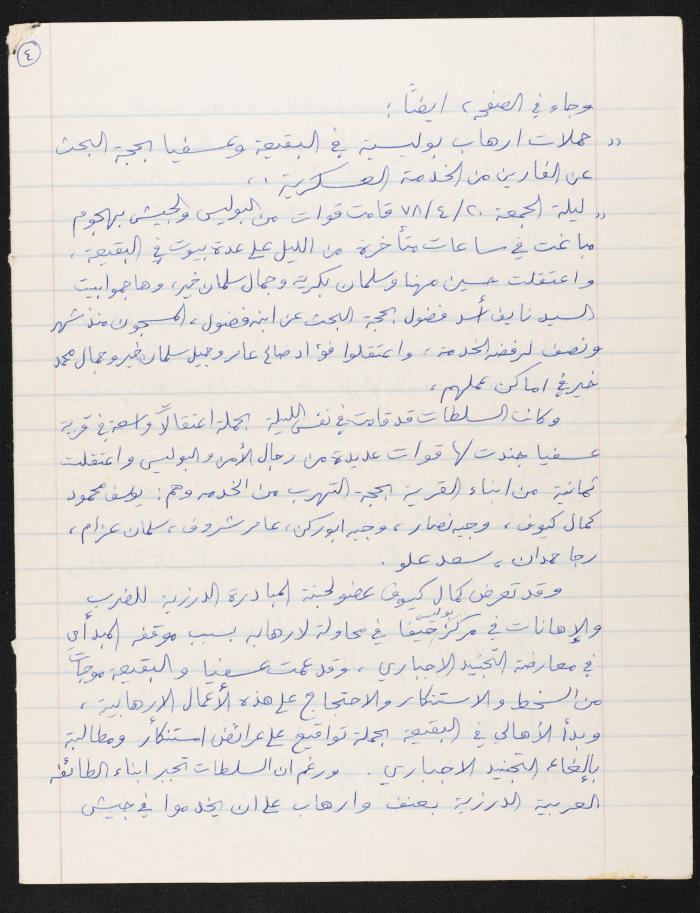 ٤
وجاء في الصفحة ، ايضاً :
" حملات ارهاب بوليسية في البقيعة وعسفيا بحجة البحث
عن الفارين من الخدمة العسكرية ".
" ليلة الجمعة ٧٨/٤/٢٠ قامت قوات من البوليس والجيش بهجوم
مباغت في ساعات متأخرة من الليل على عدة بيوت في البقيعة ،
واعتقلت حسين مهنا وسلمان بكرية وجمال سلمان خير ، وهاجموا بيت
السيد نايف أسد فضول بحجة البحث عن ابنه فضول ، المسجون منذ شهر
ونصف لرفضه الخدمة ، واعتقلوا فؤاد صالح عامر وجميل سلمان خير وجمال محمد
خير في اماكن عملهم ،
وكانت السلطات قد قامت في نفس الليلة بحملة اعتقالات واسعة في قرية
عسفيا جندت لها قوات عديدة من رجال الأمن والبوليس واعتقلت
ثمانية من ابناء القرية بحجة التهرب من الخدمه وهم : يوسف محمود
كمال كيوف ، وجيه نصار ، وجيه ابو ركن ، عامر شروف ، سلمان عزام ،
رجا حمدان ، سعد علو .
وقد تعرض كمال كيوف عضو لجنة المبادرة الدرزية للضرب
والإهانات في مركز بوليس حيفا في محاولة لارهابه بسبب موقفه المبدأي
في معارضة التجنيد الاجباري ، وقد عمت عسفيا والبقيعة موجات
من السخط والاستنكار والاحتجاج على هذه الأعمال الارهابية ،
وبدأ الأهالي في البقيعة بحملة تواقيع على عرائض استنكار ومطالبة
بإلغاء التجنيد الاجباري . ورغم ان السلطات تجبر ابناء الطائفة
العربية الدرزية بعنف وارهاب على ان يخدموا في جيش